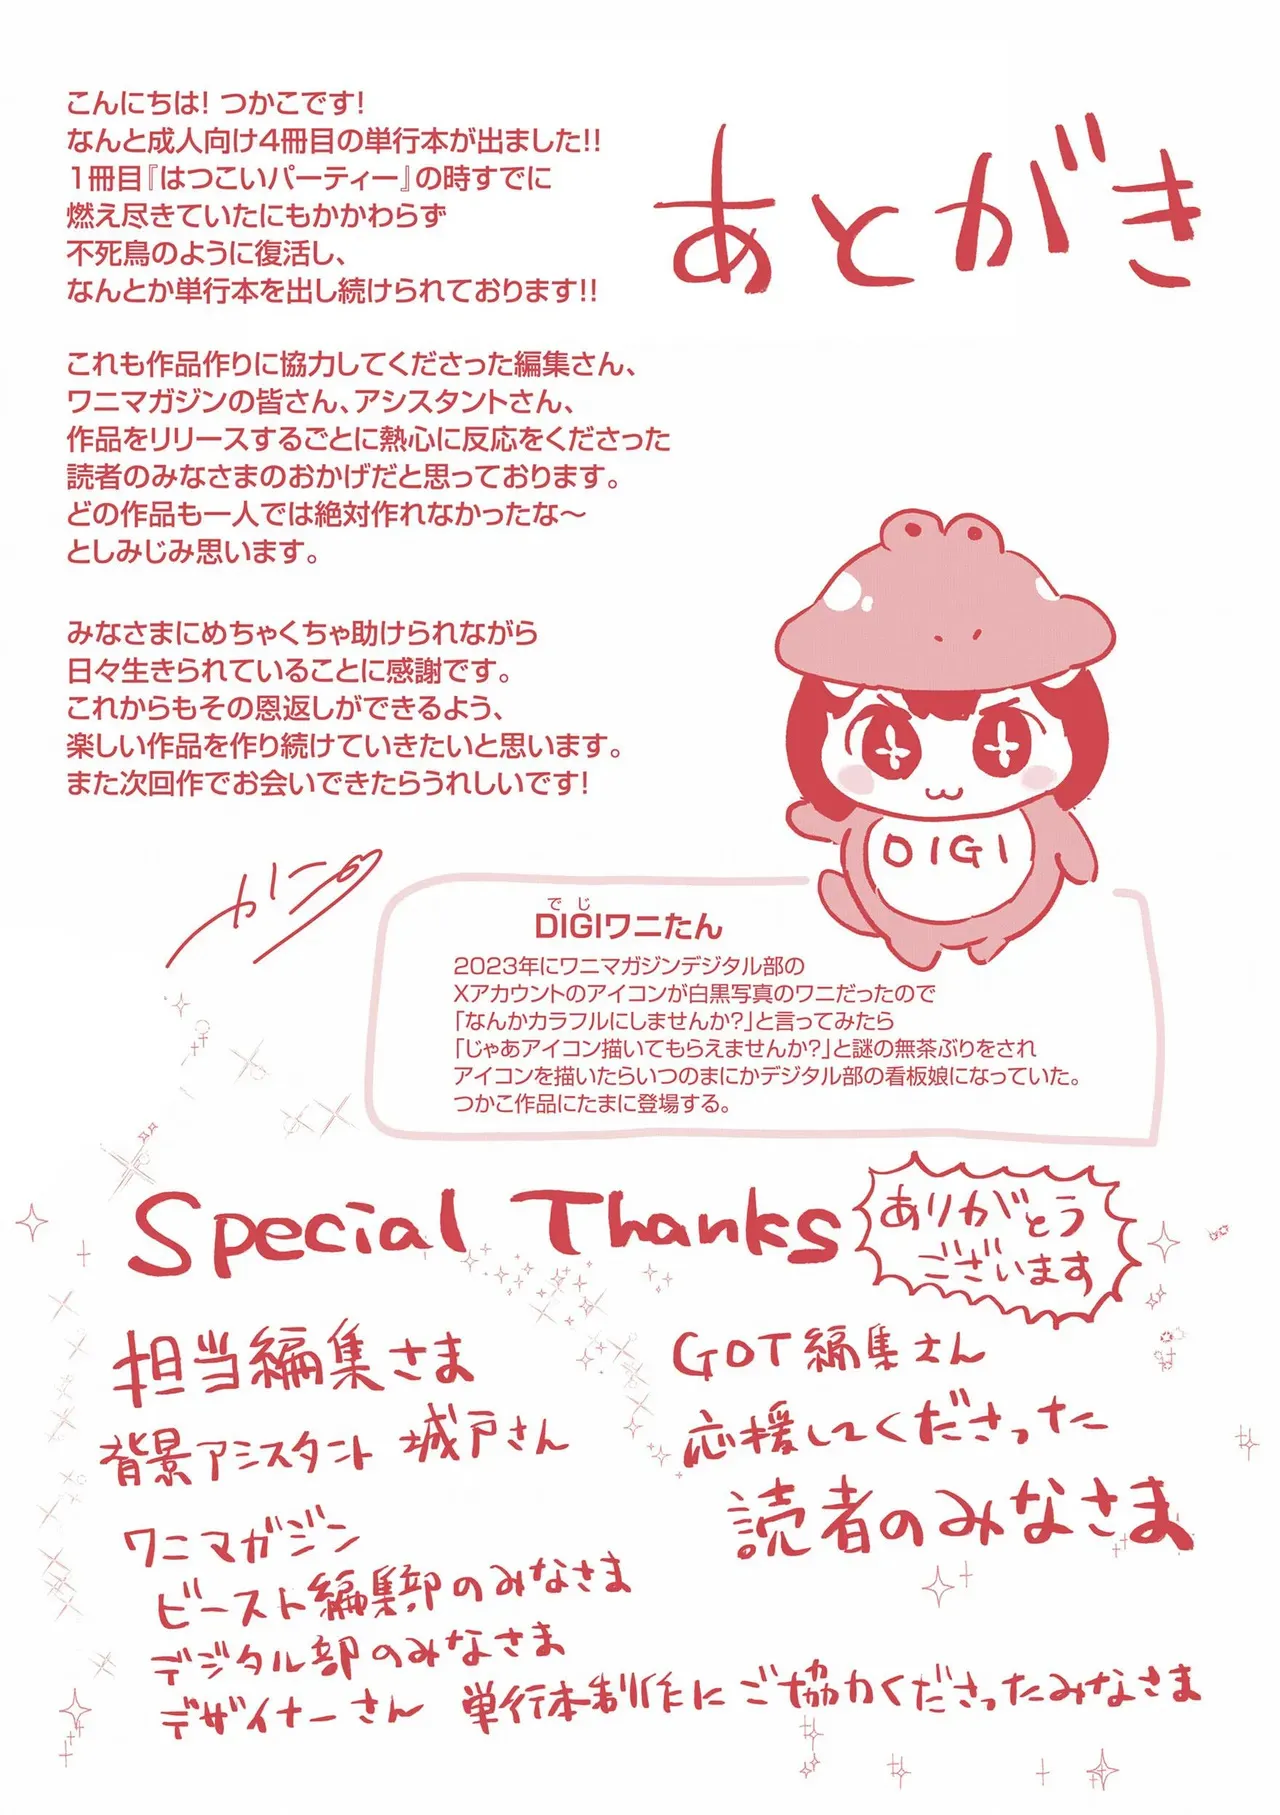 あとがき
こんにちは! つかこです!
なんと成人向け4冊目の単行本が出ました!!
1冊目『はつこいパーティー』の時すでに
燃え尽きていたにもかかわらず
不死鳥のように復活し、
なんとか単行本を出し続けられております!!
これも作品作りに協力してくださった編集さん、
ワニマガジンの皆さん、アシスタントさん、
作品をリリースするごとに熱心に反応をくださった
読者のみなさまのおかげだと思っております。
どの作品も一人では絶対作れなかったな〜
としみじみ思います。
みなさまにめちゃくちゃ助けられながら
日々生きられていることに感謝です。
これからもその恩返しができるよう、
楽しい作品を作り続けていきたいと思います。
また次回作でお会いできたらうれしいです!
DIGI
でじ
DIGIワニたん
2023年にワニマガジンデジタル部の
Xアカウントのアイコンが白黒写真のワニだったので
「なんかカラフルにしませんか?」と言ってみたら
「じゃあアイコン描いてもらえませんか?」と謎の無茶ぶりをされ
アイコンを描いたらいつのまにかデジタル部の看板娘になっていた。
つかこ作品にたまに登場する。
Special Thanks
ありがとう
ございます
担当編集さま
背景アシスタント 城戸さん
ワニマガジン
ビースト編集部のみなさま
デジタル部のみなさま
デザイナーさん 単行本制作にご協力くださったみなさま
GOT編集さん
応援してくださった
読者のみなさま